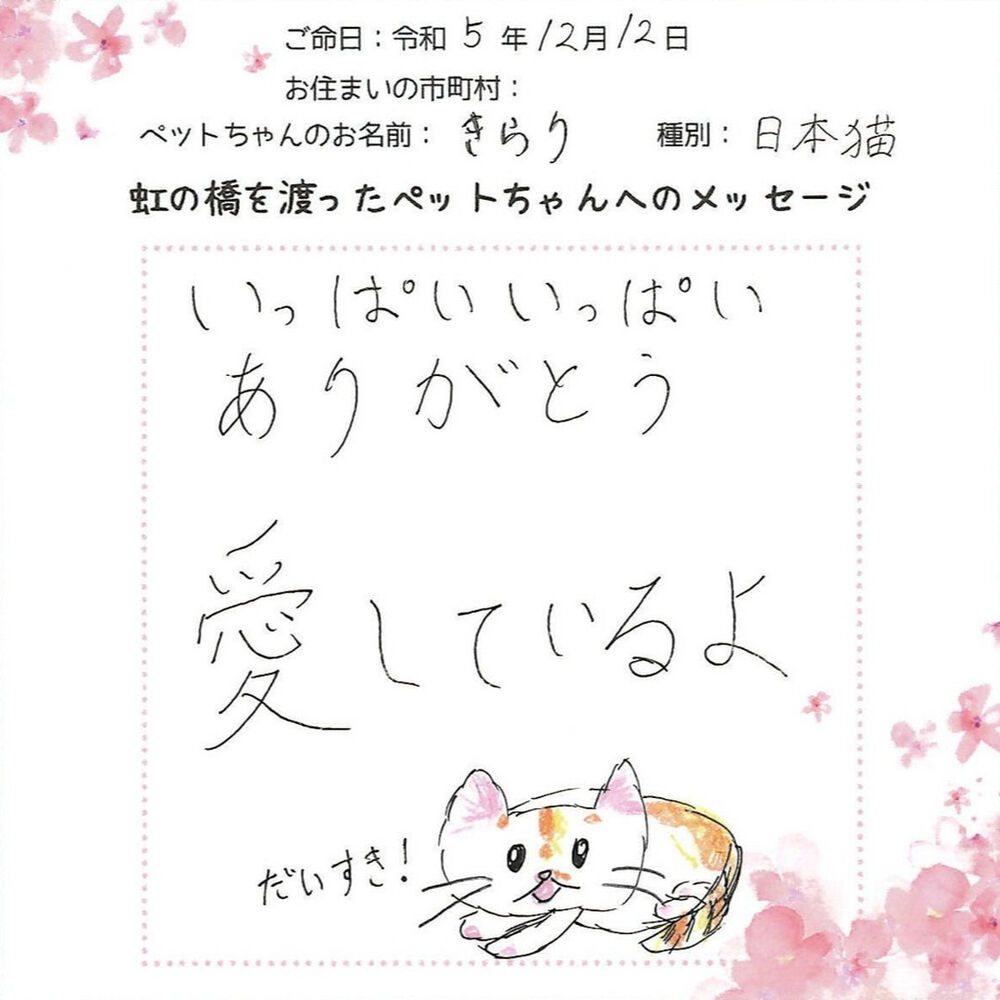 ご命日：令和 5 年 12月 12日
お住まいの市町村：
ペットちゃんのお名前： きらり　種別： 日本猫
虹の橋を渡ったペットちゃんへのメッセージ
いっぱいいっぱい
ありがとう
愛しているよ
だいすき!